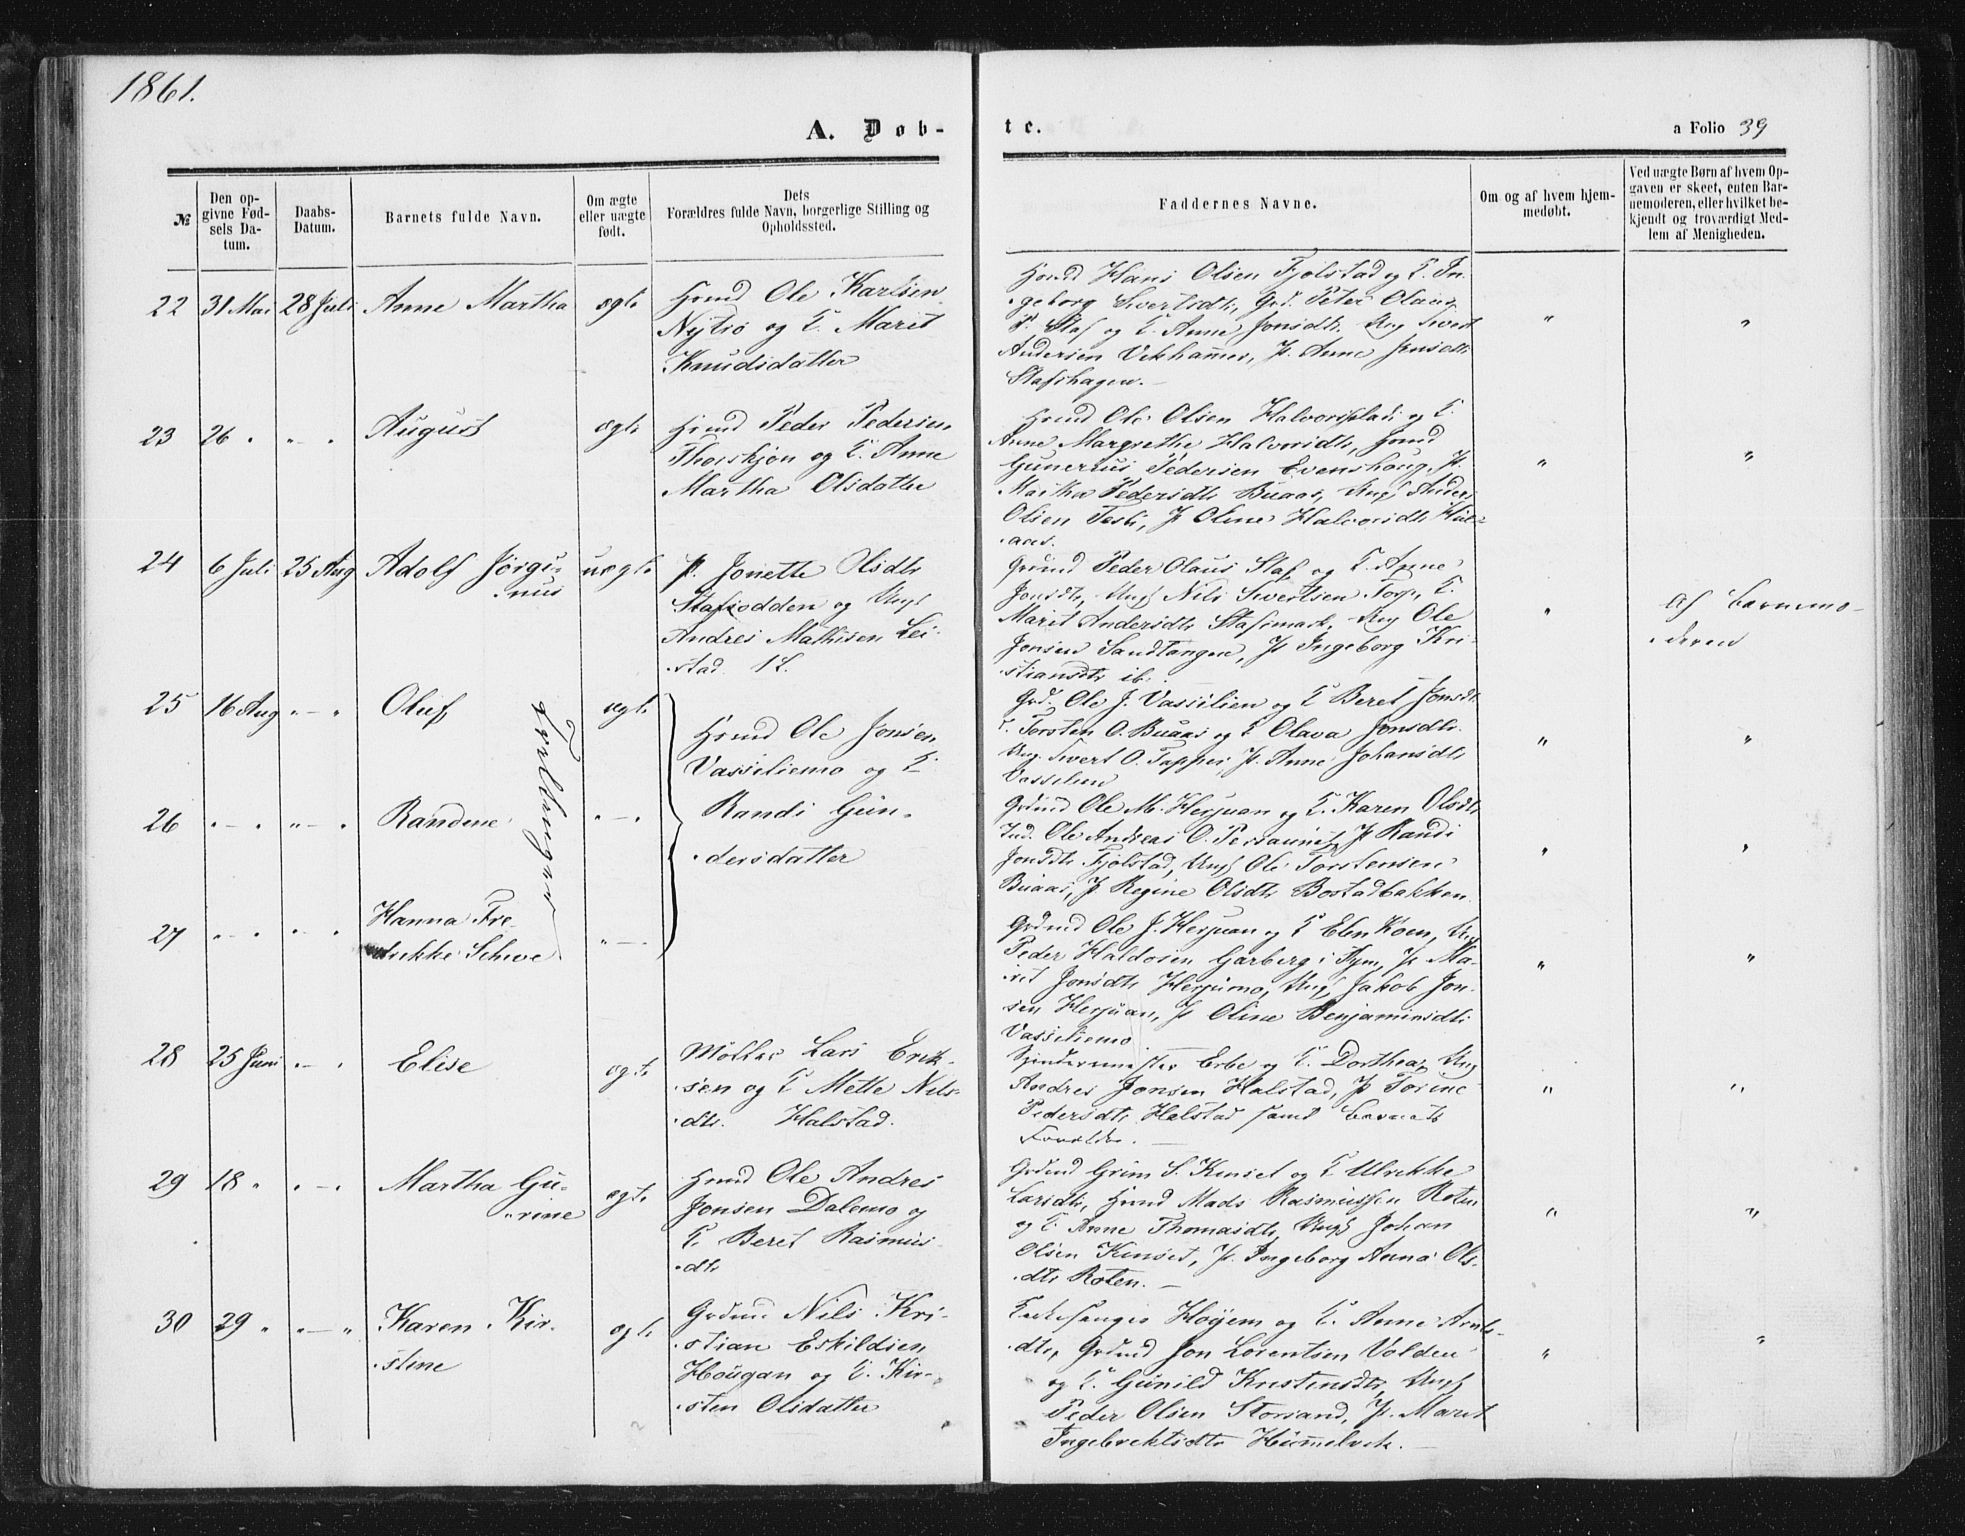 1861.
A. Døb-
te.
a Folio 39
№
Den op-
givne Fød-
sels Da-
tum.
Daabs-
Datum.
Barnets fulde Navn.
Om ægte
eller uægte
født.
Dets
Forældres fulde Navn, borgerlige Stilling og
Opholdssted.
Faddernes Navne.
Om og af hvem hjem-
medøbt.
Ved uægte Børn af hvem Op-
gaven er skeet, enten Bar-
nemoderen, eller hvilket be-
kjendt og troværdigt Med-
lem af Menigheden.
22 31 Mai 28 Juli Anne Martha ægte
Hmd Ole Karlsen
Nytrø og K. Marit
Knudsdatter
Hmd Hans Olsen Fjølstad og K. In-
geborg Sivertsdtr, Grd. Peter Olaus
P. Staf og K. Anne Jonsdtr. Ung Sivert
Andersen Vikhammer, P. Anne Jensdtr
Stafshagen.
23 26 " " - " August ægte
Hmd Peder Pedersen
Thorskjøn og K. Anne
Martha Olsdatter
Hmd Ole Olsen Halvorsplads og K.
Anne Margrethe Halvorsdtr, Hmd
Gunerius Pedersen Evenshaug, P.
Martha Pedersdtr Buaas, Ung Anders
Olsen Teste, P Oline Halvorsdtr
24 6 Juli 25 Aug Adolf Jørgi-
nus uægte
P. Jonette Olsdtr
Stafsodden og Ungk
Andres Mathisen Lei-
stad 1 L.
Grdmd Peder Olaus Staf og K. Anne
Jonsdtr, Ungk Nils Sivertsen Torp, K.
Marit Andersdtr Stafsmark, Ung Ole
Jonsen Sandtangen, P Ingeborg Kri-
stiansdtr ib.
Af Barnemo-
deren
25 16 Aug " - " Oluf ægte
Tvillinger
Hmd Ole Jonsen
Vassliemo og K
Randi Gun-
dersdatter
Grd. Ole J. Vasslien og K Beret Jonsdtr
Torsten O. Buaas og K Olava Jonsdtr.
Ung Sivert O. Tapper, P. Anne Johansdtr
Vasslien
26 " - " " - " Randine " - "
Grdmd Ole M. Herjuan og K. Karen Olsdtr
Ind. Ole Andreas O. Persaunet, P Randi
Jonsdtr Fjølstad, Ungk Ole Torstensen
Buaas, P Regine Olsdtr Bostadbakken
27 " - " " - " Hanna Fre-
drikke Schive " - "
Grdmd Ole J. Herjuan og K Elen Koen, Ung
Peder Haldosen Garberg i Hjem, P Ma-
rit Jonsdtr Herjumo, Ung Jakob Jon-
sen Herjuan, P Oline Benjaminsdtr
Vassliemo
28 25 Juni " - " Elise ægte
Møller Lars Erik-
sen og K Mette Nils-
dtr. Halstad.
Erbe og K Dorthea, Ung
Andres Jonsen Halstad, P Torine
Pedersdtr Halstad samt Barnets
Forældre.
29 18 " " - " Martha Gu-
rine ægte
Hmd Ole Andres
Jonsen Dalemo og
K. Beret Rasmus-
dtr
Grdmd Grim S. Kinset og K Ulrikke
Larsdtr, Hmd Mads Rasmussen Roten
og K. Anne Thomasdtr Ungk Johan
Olsen Kinset, P. Ingeborg Anna Ols-
dtr Roten.
30 29 " " - " Karen Kir-
stine ægte
Grdmd Nils Kri-
stian Eskildsen
Hougan og K. Kir-
sten Olsdatter
Kirkesanger Høyem og K. Anne Arnts-
dtr, Grdmd Jon Lorentsen Volden
og K. Gunild Kristensdtr, Ungk
Peder Olsen Storsand, P. Marit
Ingebrektsdtr Hummelvik.